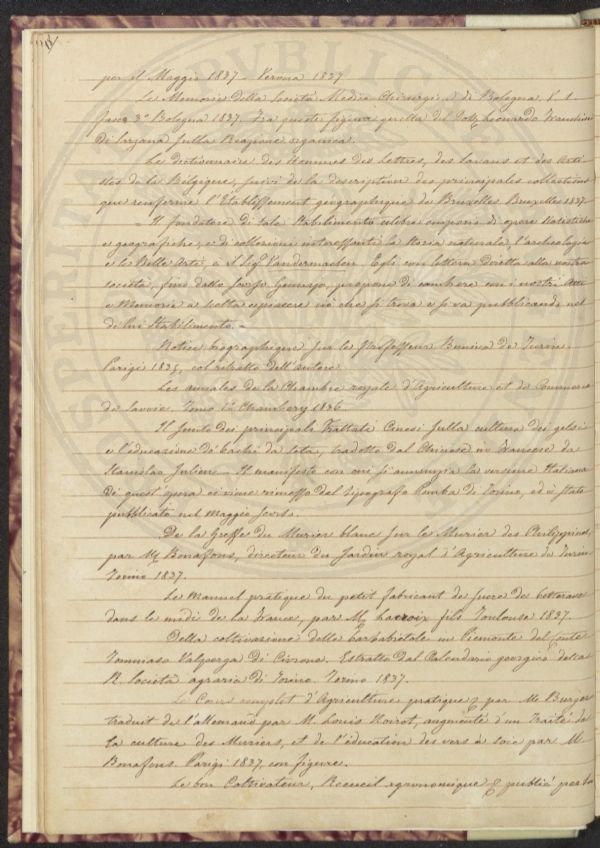 per il Maggio 1837 - Verona 1837
Le Memorie della Società Medico Chirurgica di Bologna, V. 1.
Fasc. 3º Bologna 1837. tra queste figura quella del Dott. Leonardo Franchini
di Sarzana sulla Reazione organica.
Le Dictionnaire des Hommes des Lettres, des savans et des Arti-
stes de la Bèlgique, suivi de la description des principales collections
que renferme l'Etablissement géographique de Bruxelles Bruxelles 1837
Il fondatore di tale Stabilimento celebre emporio di opere statistiche
e geografiche, e di collezioni interessanti la Storia naturale, l'archeologia
e le Belle Arti, è il Sigr Vandermaelen. Egli con lettera diretta alla nostra
società, fino dallo scorso Gennajo, propone di cambiare con i nostri Atti
e Memorie a scelta e piacere ciò che si trova e si va pubblicando nel
di lui Stabilimento. -
Notice biographique sur le Professeur Buniva de Turin.
Parigi 1835, col ritratto dell'autore
Les annales de la Chambre royale d'Agriculture et de Commerce
de Savoie. Tomo Chambery 1836.
Il Sunto dei principali Trattati Cinesi sulla cultura dei gelsi
e l'educazione de' bachi da seta, tradotto dal Chinese in Francese da
Stanislao Julien - Il manifesto con cui si annunzia la versione Italiana
di quest'opera ci viene rimesso dal tipografo Pomba di Torino, ed è stato
pubblicato nel Maggio scorso.
De la Greffe du Murier blanc sur le Murier des Philippines,
par Mr Bonafous, directeur du Jardin royal d'Agriculture de Turin
Torino 1837.
Le Manuel pratique du petit fabricant de sucre de betterave
dans le midi de la France, par M. Lacroix fils Toulouse 1837.
Della coltivazione delle barbabietole in Piemonte del conte
Tommaso Valperga di Civrone. Estratto dal Calendario georgico della
R. Società agraria di Torino. Torino 1837.
Le Cours complet d'Agriculture pratique par M. Burger
traduit de l'allemand par M. Louis Noirot, augmenté d'un Traité de
la culture des Muriers, et de l'éducation des vers à soie par M
Bonafous Parigi 1837, con figure.
Le bon Cultivateur, Recueil agronomique & publié par la